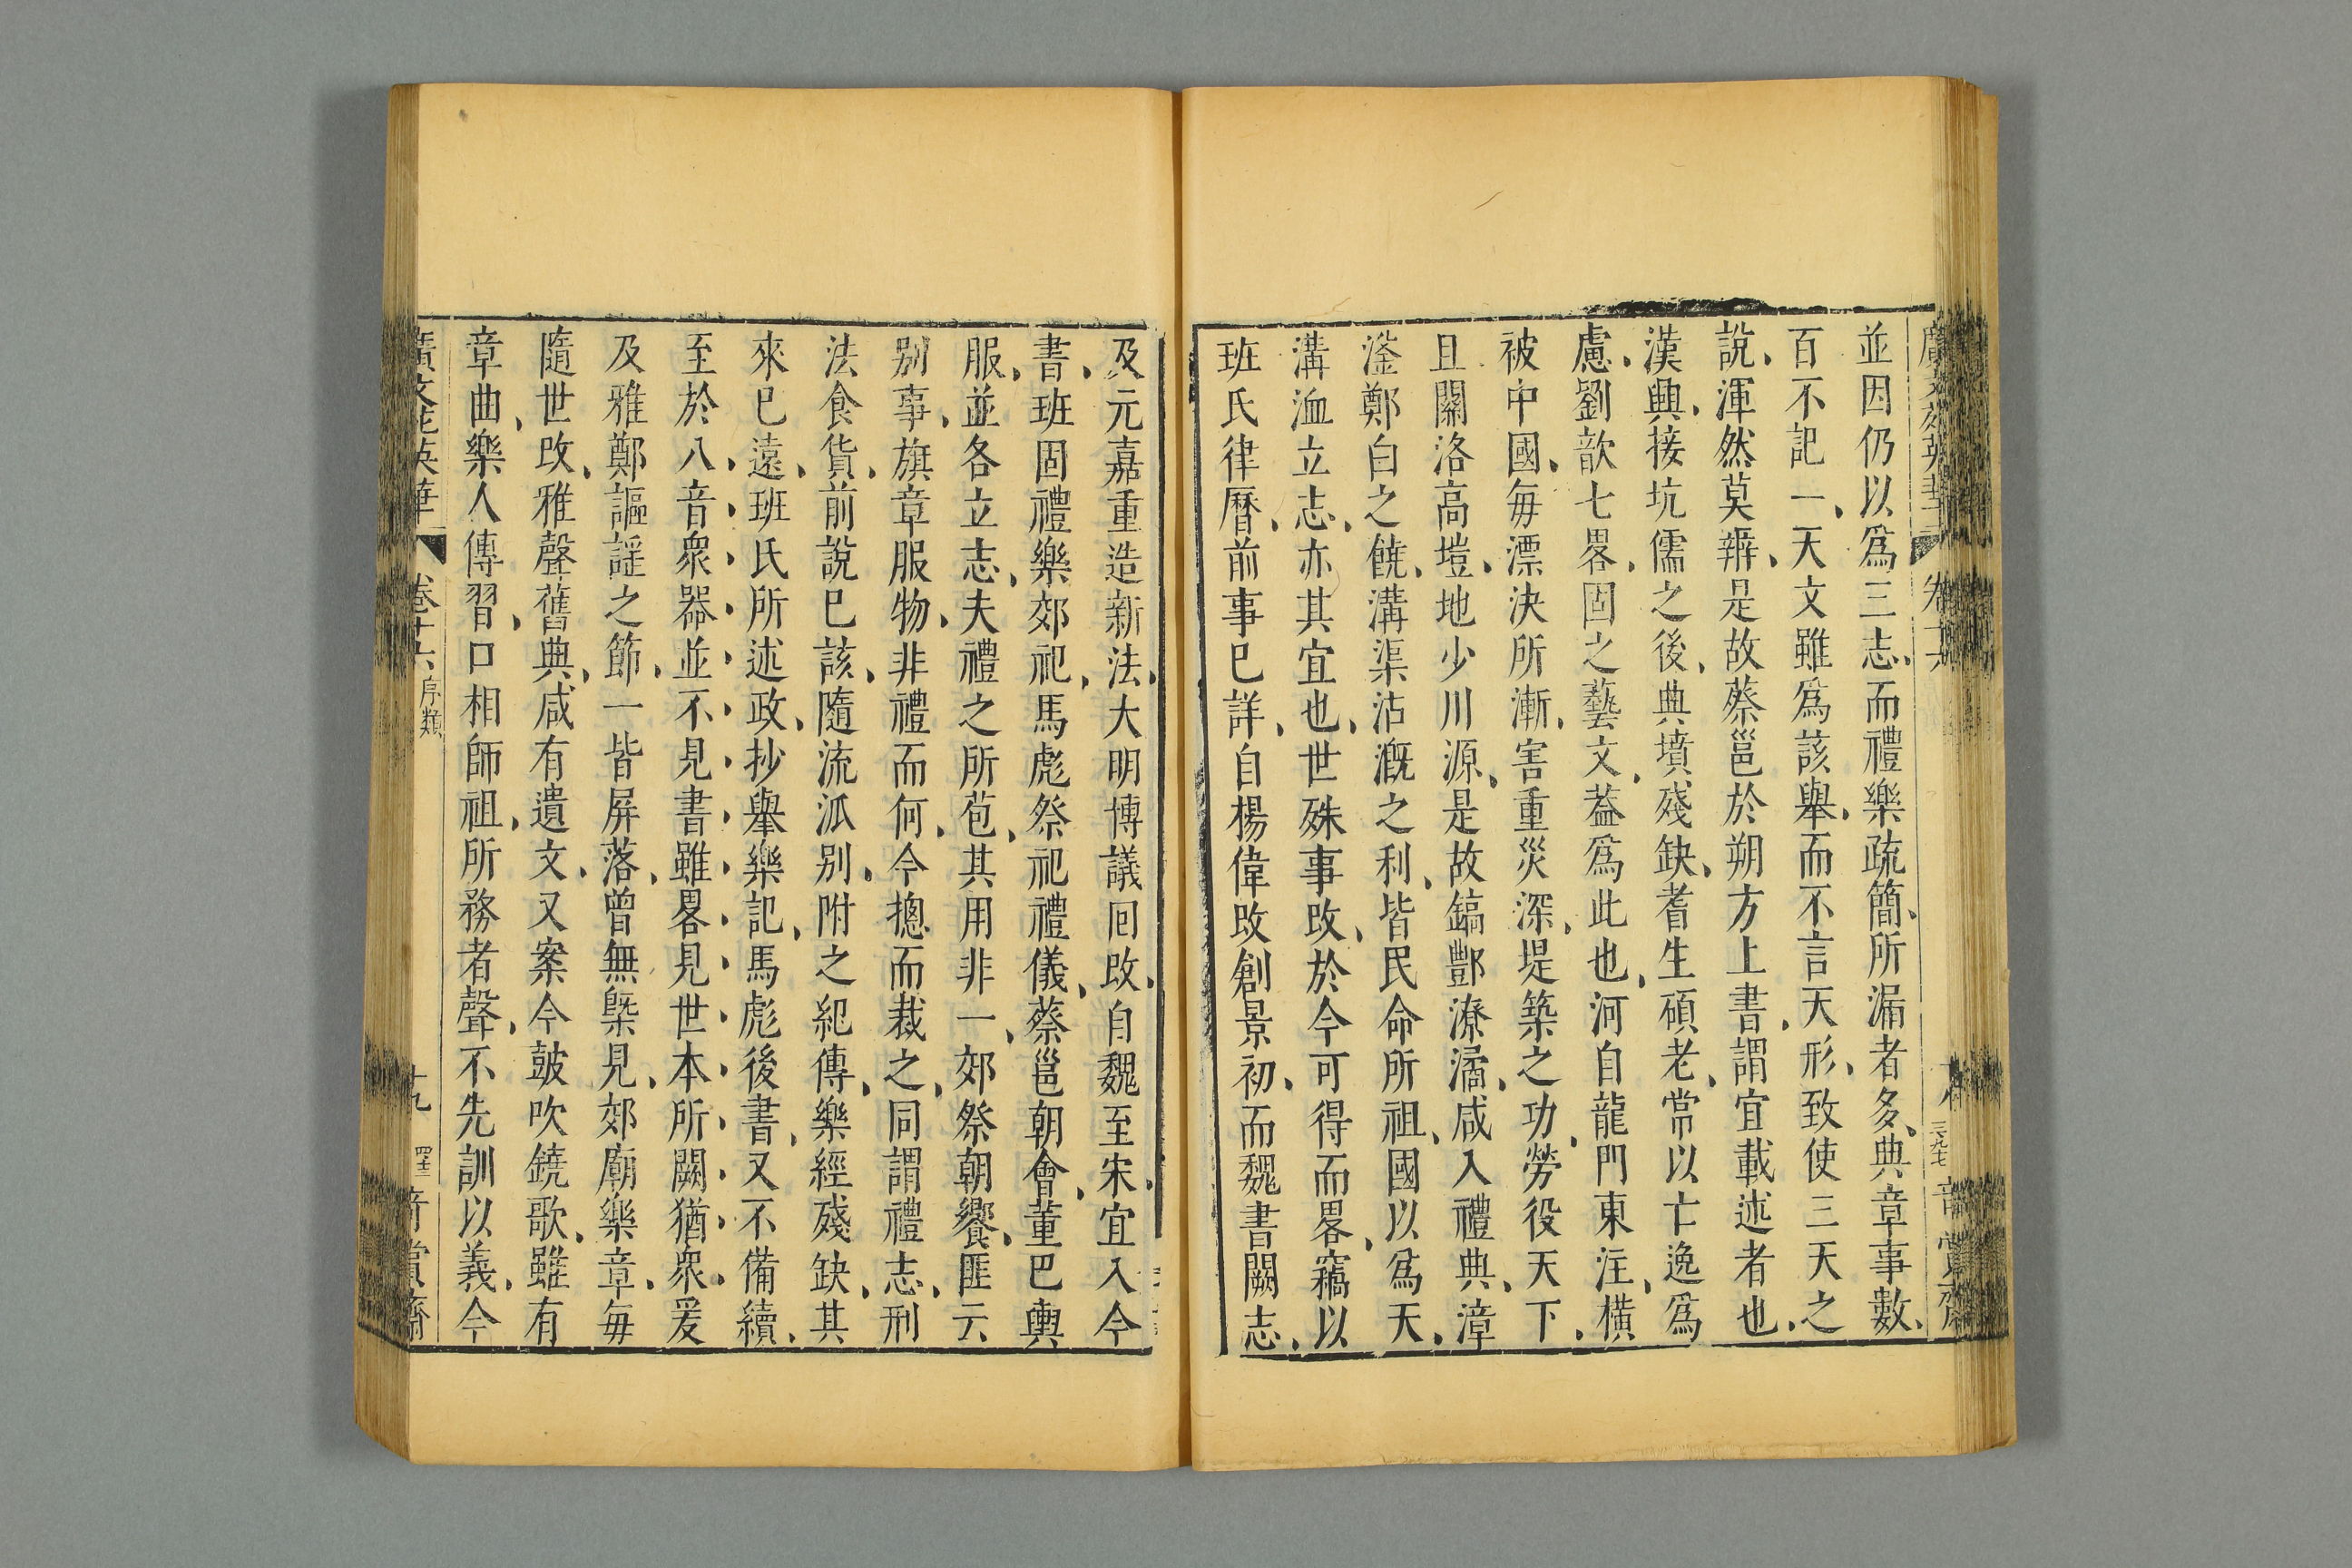 並因仍以爲三志、而禮樂疏簡、所漏者多、典章事數、
百不記一、天文雖爲該舉、而不言天形、致使三天之
說、渾然莫辨、是故蔡邕於朔方上書、謂宜載述者也、
漢興、接坑儒之後、典墳殘缺、耆生碩老、常以亡逸爲
慮、劉歆七畧、固之藝文、葢爲此也、河自龍門東注、橫
被中國、每漂決所漸、害重災深、堤築之功、勞役天下、
且關洛高塏、地少川源、是故鎬酆潦潏、咸入禮典、漳
滏鄭白之饒、溝渠沾溉之利、皆民命所祖、國以爲天、
溝洫立志、亦其宜也、世殊事改、於今可得而畧、竊以
班氏律曆、前事巳詳、自楊偉改創景初、而魏書闕志、
及元嘉重造新法、大明博議囘改、自魏至宋、宜入今
書、班固禮樂郊祀、馬彪祭祀禮儀、蔡邕朝會、董巴輿
服、並各立志、夫禮之所苞、其用非一、郊祭朝饗、匪云
別事、旗章服物、非禮而何、今摠而裁之、同謂禮志、刑
法食貨、前說巳該、隨流派別、附之紀傳、樂經殘缺、其
來巳遠、班氏所述政、抄舉樂記、馬彪後書、又不備續、
至於八音衆器、並不見書、雖畧見世本、所闕猶衆、爰
及雅鄭謳謡之節、一皆屏落、曾無槩見、郊廟樂章、每
隨世改、雅聲舊典、咸有遺文、又案今鼓吹鐃歌、雖有
章曲、樂人傳習、口相師祖、所務者聲、不先訓以義、今
廣文苑英華 卷十六 序類 十九 奇賞齋